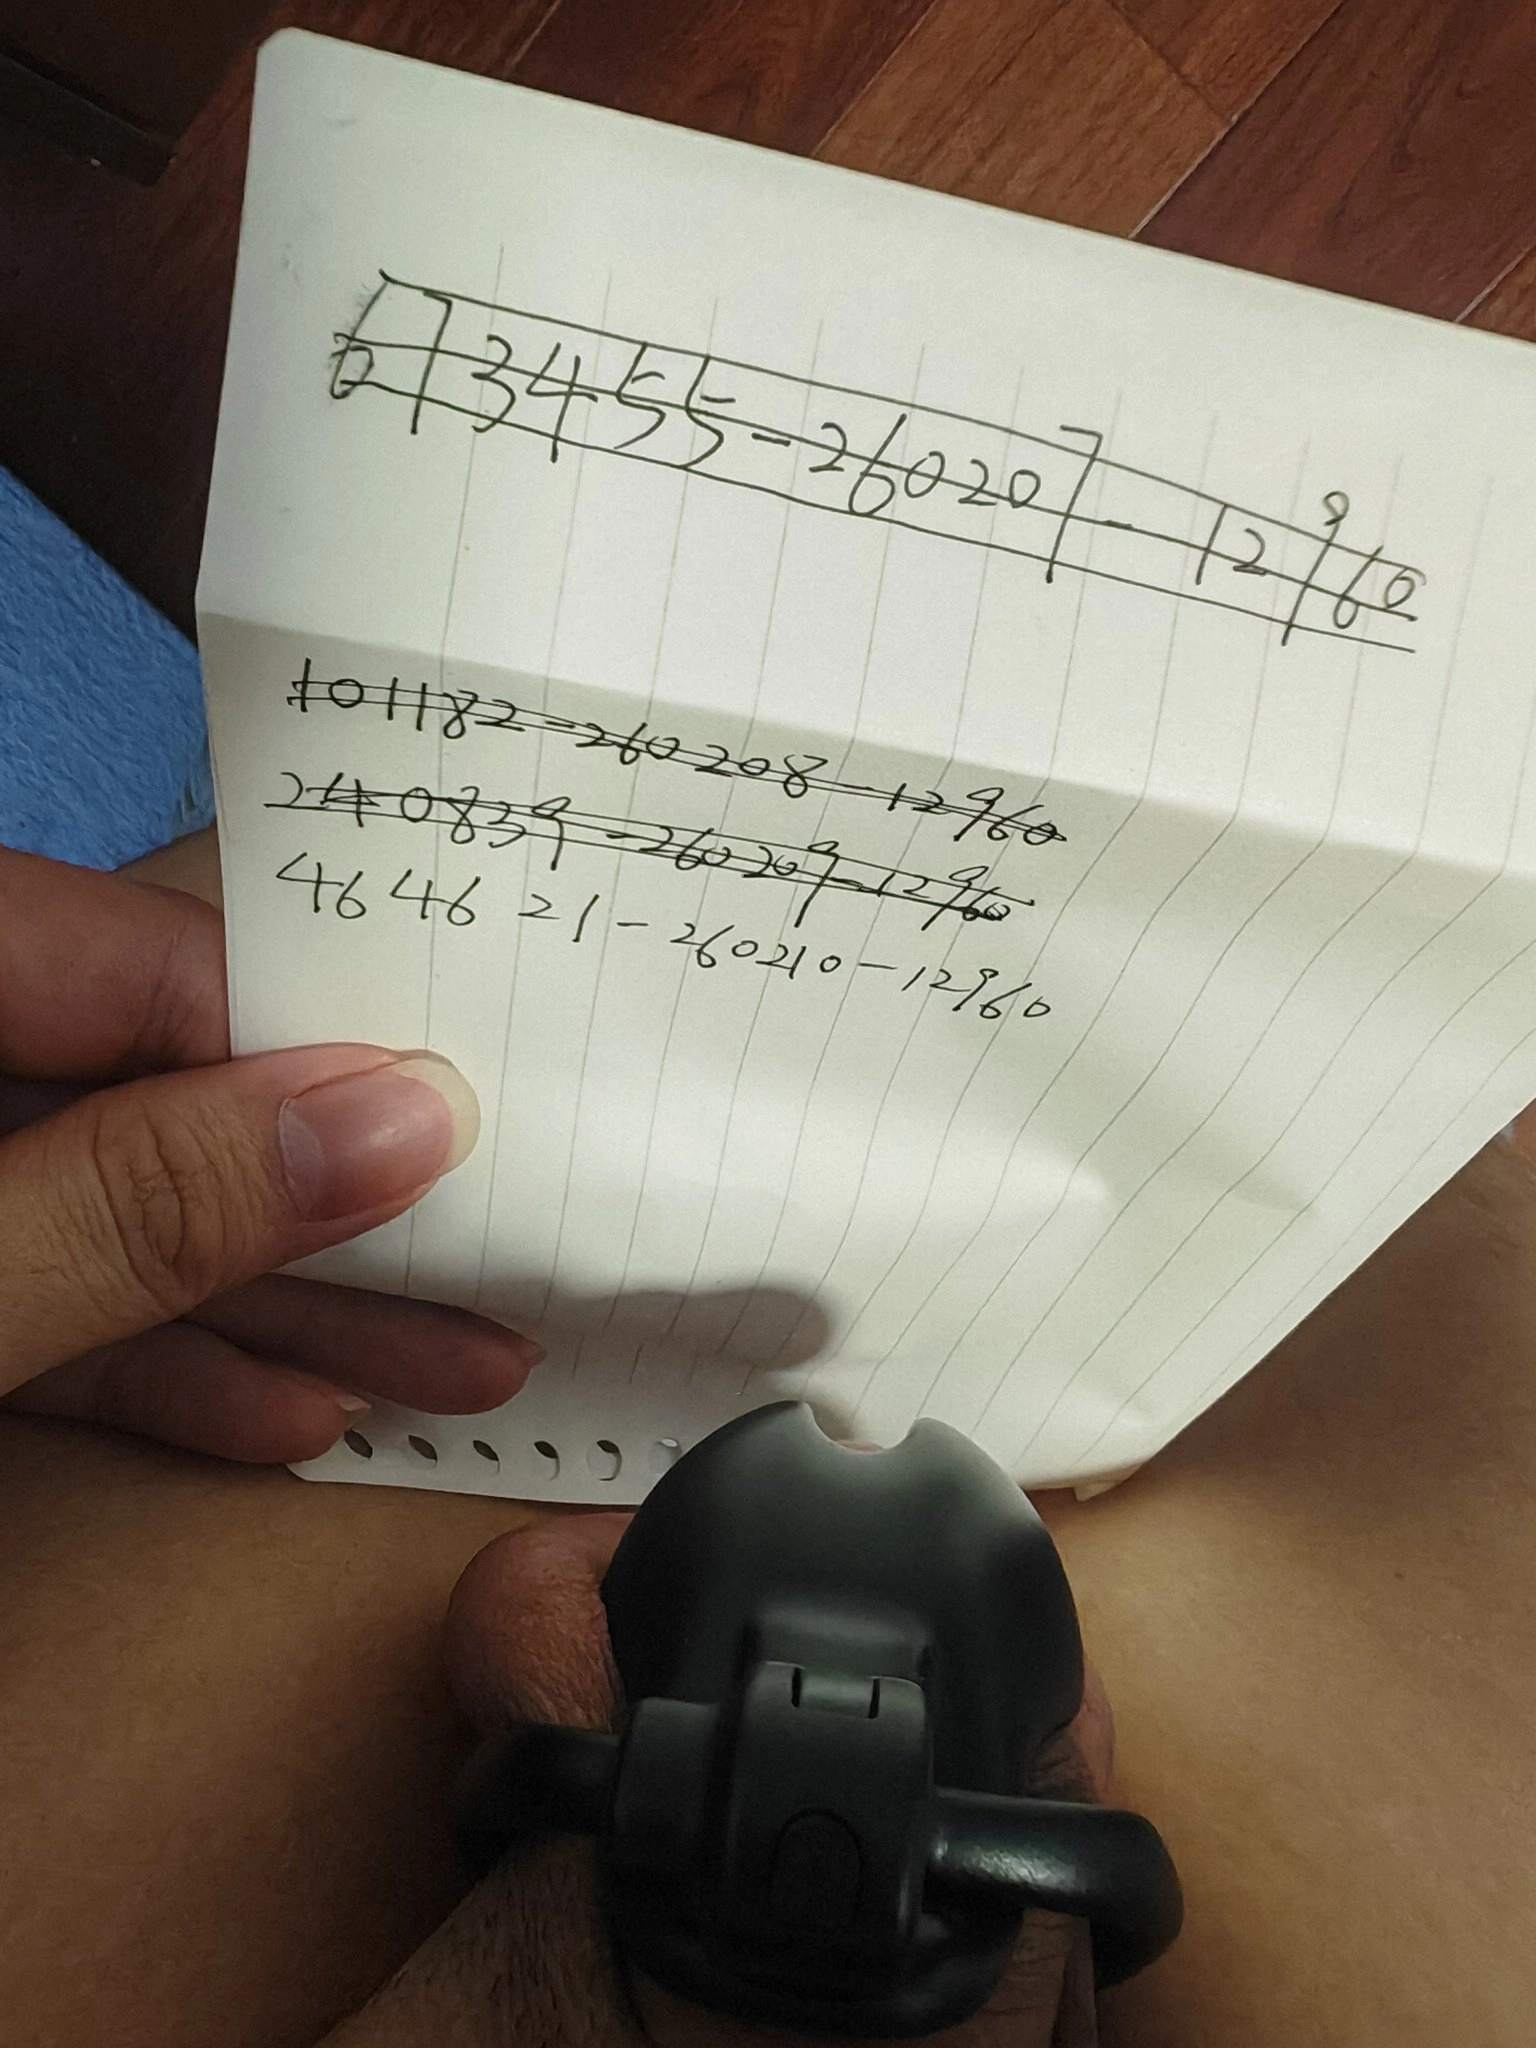 073455-260207-12960
101182-260208-12960
240839-260209-12960
464621-260210-12960